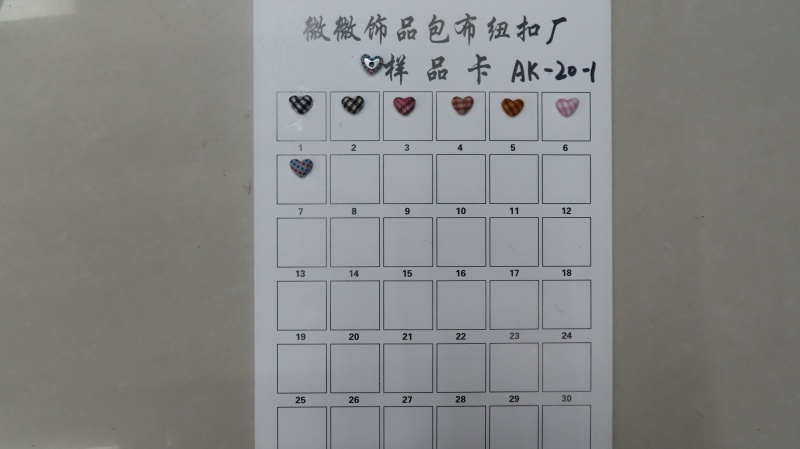 微微饰品包布纽扣厂
样品卡 AK-20-1
1 2 3 4 5 6
7 8 9 10 11 12
13 14 15 16 17 18
19 20 21 22 23 24
25 26 27 28 29 30